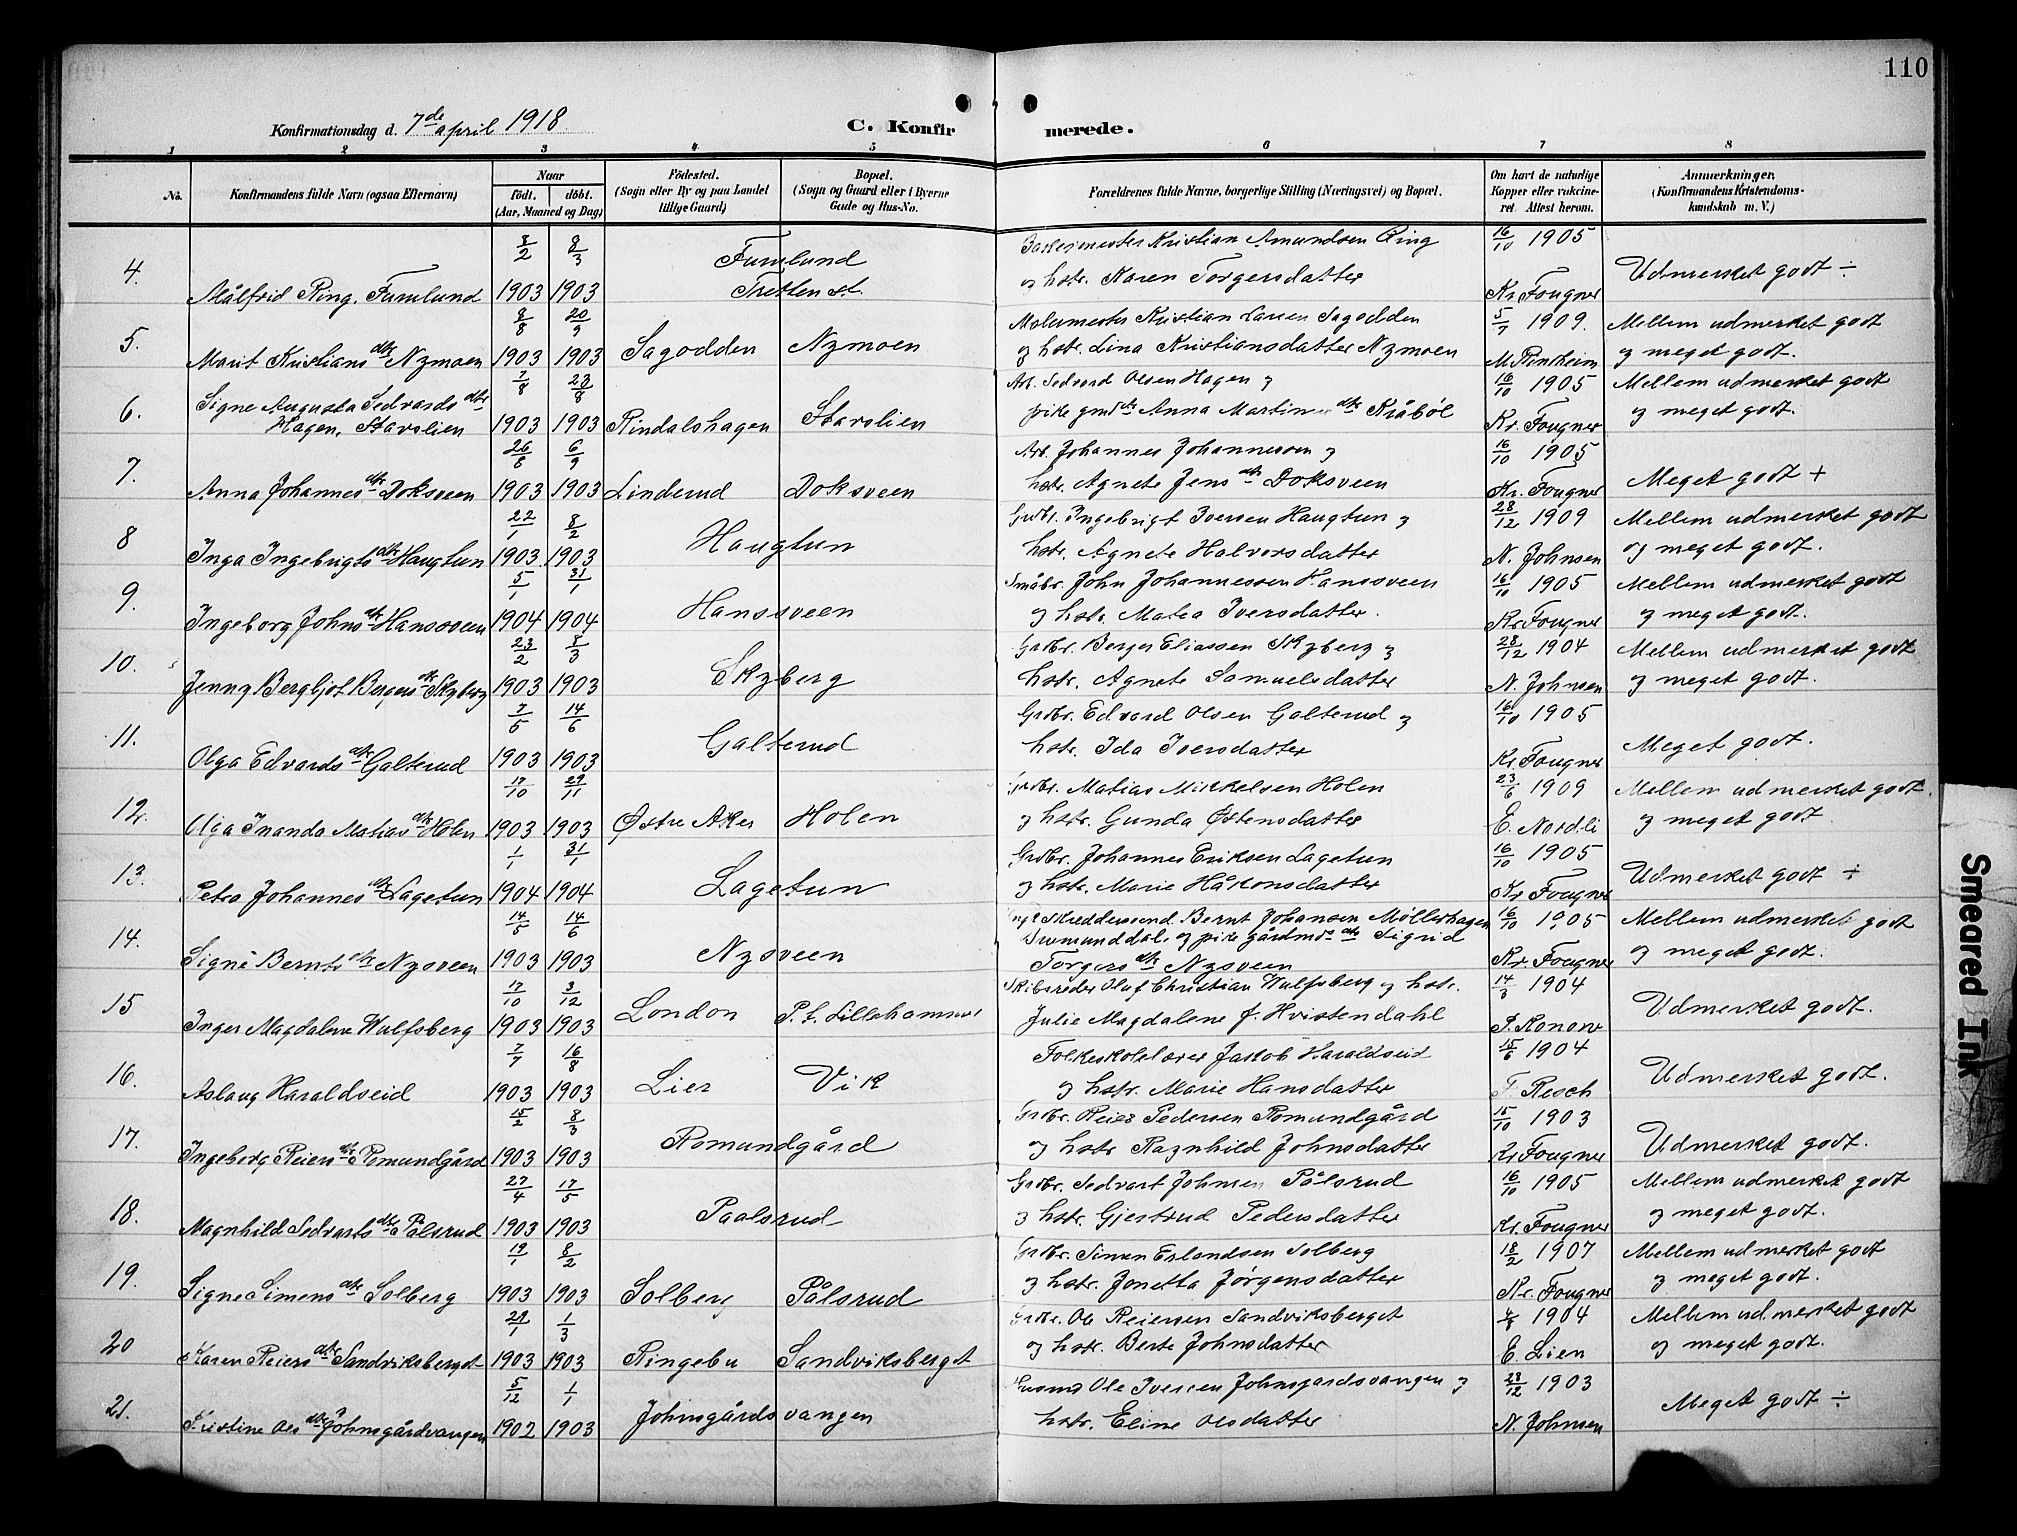 110
Konfirmationsdag d. 7de april 1918
C. Konfirmerede.
1 2 3 4 5 6 7 8
No. Konfirmandens fulde Navn (ogsaa Efternavn) Naar født. døbt. (Aar, Maaned og Dag) Fødested. (Sogn eller By og paa Landet tillige Gaard) Bopæl. (Sogn og Gaard eller i Byerne Gade og Hus-No. Forældrenes fulde Navne, borgerlige Stilling (Næringsvei) og Bopæl. Om havt de naturlige Kopper eller vakcineret. Attest herom. Anmærkninger, (Konfirmandens Kristendomskundskab m. V.)
8/2 8/3 Furulund Kristian Amundsen Ring 16/10 1905
4. Målfrid Ring, Furulund 1903 1903 Tretten st. og hstr. Karen Torgersdatter Kr. Fougner Udmerket godt ÷
8/8 20/9 Malermester Kristian Larsen Sagodden 5/7 1909. Mellem udmerket godt
5. Marit Kristians dtr Nymoen 1903 1903 Sagodden Nymoen og hstr. Lina Kristiansdatter Nymoen M. Rinsheim og meget godt.
7/8 23/8 Arb. Sedvard Olsen Hagen og 16/10 1905 Mellem udmerket godt
6. Signe Augusta Sedvards dtr Hagen, Stavslien 1903 1903 Rindalshagen Stavslien pike gmdtr Anna Martine dtr Kråbøl Kr. Fougner og meget godt.
26/8 6/9 Arb. Johannes Johannessen og 16/10 1905
7. Anna Johannes dtr Doksveen 1903 1903 Linderud Doksveen hstr. Agnete Jens dtr Doksveen Kr. Fougner Meget godt +
22/1 8/2 Grdbr. Ingebrigt Iversen Haugtun og 28/12 1909 Mellem udmerket godt
8 Inga Ingebrigts dtr Haugtun 1903 1903 Haugtun hstr. Agnete Halvorsdatter N. Johnsen og meget godt.
5/1 31/1 Småbr. John Johannessen Hanssveen 16/10 1905 Mellem udmerket godt
9. Ingeborg Johns dtr Hanssveen 1904 1904 Hanssveen og hstr. Matea Iversdatter. Kr. Fougner og meget godt.
23/2 8/3 Grdbr. Berger Eliassen Skyberg og 28/12 1904 Mellem udmerket godt
10. Jenny Bergljot Bergers dtr Skyberg 1903 1903 Skyberg hstr. Agnete Samuelsdatter N. Johnsen og meget godt.
7/5 14/6 Grdbr. Edvard Olsen Galterud og 16/10 1905
11. Olga Edvards dtr Galterud 1903 1903 Galterud hstr. Ida Iversdatter Kr. Fougner Meget godt.
17/10 29/11 Grdbr. Matias Mikkelsen Holen 23/6 1909 Mellem udmerket godt
12. Olga Inanda Matias dtr Holen 1903 1903 Østre Aker Holen og hstr. Gunda Østensdatter E. Nordli og meget godt.
1/1 31/1 Grdbr. Johannes Eriksen Lagetun 16/10 1905
13. Petra Johannes dtr Lagetun 1904 1904 Lagetun og hstr. Marie Håkonsdatter Kr. Fougner Udmerket godt ÷
14/5 14/6 Skreddersvend. Bernt Johansen Møllerhagen 16/10 1905 Mellem udmerket godt
14. Signe Bernts dtr Nysveen 1903 1903 Nysveen Brumunddal. og pike gårdmds dtr Sigrid Torgers dtr Nysveen Kr. Fougner og meget godt.
17/10 3/12 Skibsreder Oluf Christian Wulfsberg og hstr. 14/3 1904
15 Inger Magdalene Wulfsberg 1903 1903 London P. t. Lillehammer Julie Magdalene f. Hvistendahl P. Konow Udmerket godt.
7/7 16/8 Folkeskolelærer Jakob Haraldseid 15/6 1904
16. Aslaug Haraldseid 1903 1903 Lier Vik og hstr. Marie Hansdatter T. Resch Udmerket godt.
15/2 8/3 Grdbr. Reier Pedersen Romundgård 15/10 1903
17. Ingeborg Reiers dtr Romundgård 1903 1903 Romundgård og hstr Ragnhild Johnsdatter Kr Fougner Udmerket godt.
27/4 17/5 Grdbr. Sedvart Johnsen Pålsrud 16/10 1905 Mellem udmerket godt
18. Magnhild Sedvarts dtr Pålsrud 1903 1903 Paalsrud og hstr. Gjertrud Pedersdatter Kr. Fougner og meget godt.
19/1 8/2 Grdbr. Simen Erlandsen Solberg 18/2 1907 Mellem udmerket godt
19. Signe Simens dtr Solberg 1903 1903 Solberg Pålsrud og hstr. Jonetta Jørgensdatter Kr. Fougner og meget godt.
29/1 1/3 Grdbr. Ole Reiersen Sandviksberget 1904 Mellem udmerket godt
20 Karen Reiers dtr Sandviksberget 1903 1903 Ringebu Sandviksberget og hstr. Berte Johnsdatter E. Lien og meget godt.
5/12 1/1 Husmd Ole Iversen Johnsgårdsvangen og 28/12 1903
21. Kristine Ols dtr Johnsgårdvangen 1902 1903 Johnsgårdsvangen hstr. Eline Olsdatter N. Johnsen Meget godt ÷
Smeared Ink